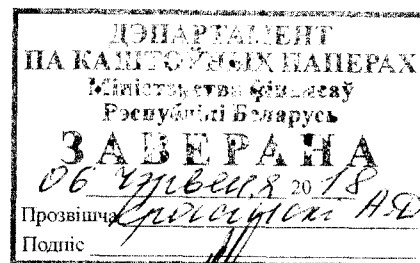 ДЭПАРТАМЕНТ
ПА КАШТОЎНЫХ ПАПЕРАХ
Міністэрства фінансаў
Рэспублікі Беларусь
ЗАВЕРАНА
06 чэрвеня 2018
Прозвішча А.Д
Подпіс